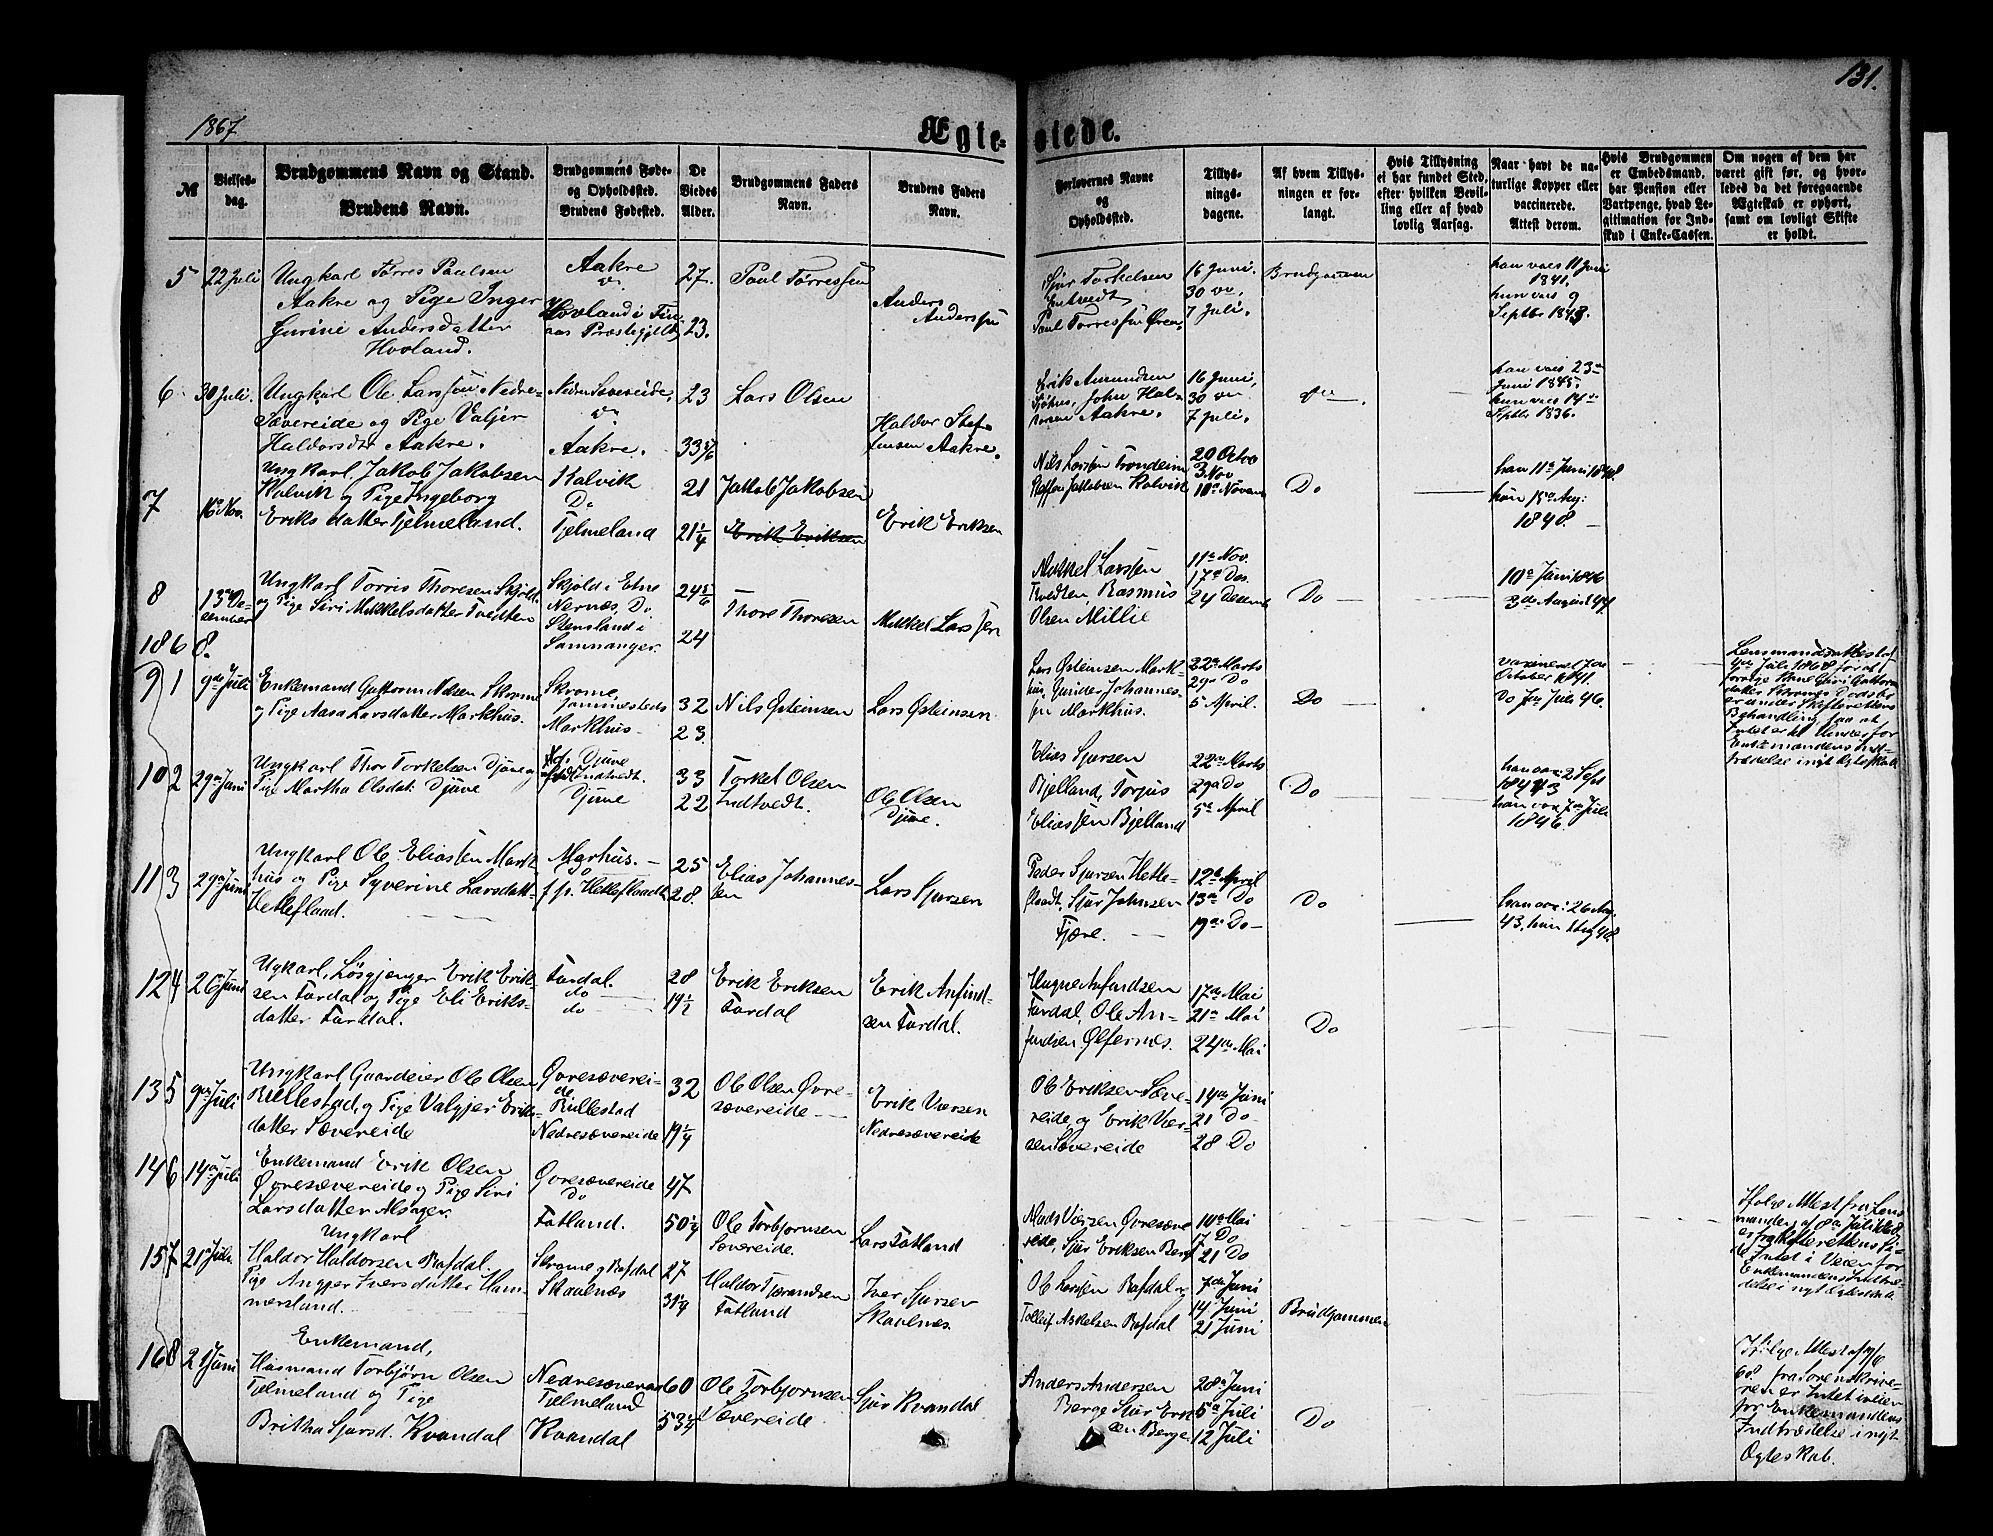 131.
1867.
Ægte-
viede.
№
Vielses-
dag.
Brudgommens Navn og Stand.
Brudens Navn.
Brudgommens Føde-
og Opholdssted.
Brudens Fødested.
De
Viedes
Alder.
Brudgommens Faders
Navn.
Brudens Faders
Navn.
Forlovernes Navne
og
Opholdssted.
Tillys-
nings-
dagene.
Af hvem Tillys-
ningen er for-
langt.
Hvis Tillysning
ei har fundet Sted,
efter hvilken Bevil-
ling eller af hvad
lovlig Aarsag.
Naar havt de na-
turlige Kopper eller
vaccinerede.
Attest derom.
Hvis Brudgommen
er Embedsmand,
har Pension eller
Vartpenge, hvad Le-
gitimation for Ind-
skud i Enke-Cassen.
Om nogen af dem har
været gift før, og hvor-
ledes da det foregaaende
Ægteskab er ophørt,
samt om lovligt Skifte
er holdt.
5
22 Juli
Ungkarl Tørres Paulsen
Aakre og Pige Inger
Gurine Andersdatter
Hovland.
Aakre
Hovland i Fin-
aas Præstegjeld
27.
23.
Paul Tørressen
Anders
Anderssen
Sjur Torkelsen
Paul Tørressen
16 Juni.
30
7 Juli.
Brudgommen
han vacs 11 Juni
1841.
hun vacs 9
Septbr 1843.
6
30 Juli.
Ungkarl Ole Larssøn Nedre-
Sævereide og Pige Valjer
Haldorsdtr Aakre.
Nedre Sævereide,
Aakre.
23
33 5/6
Lars Olsen
Haldor Stef-
fensen Aakre.
Erik Amundsen
John Hal-
vorsen Aakre.
16 Juni,
30
7 Juli.
han vacs 23
Juni 1845.
hun vacs 14
Septbr 1836.
7
16 Nov.
Ungkarl Jakob Jakobsen
Kalvik og Pige Ingeborg
Eriksdatter Tjelmeland.
Kalvik
Do
Tjelmeland
21
21 1/4
Jakob Jakobsen
Erik Eriksen
Erik Eriksen
Nils Larsen Trondeim
Steffen Jakobsen Kalvik
20 Octbr
3 Nov
10 Novemb
Do
han 11 Juni 1848.
hun 18 Aug:
1848.
8
13 De-
cember
Ungkarl Torris Thoresen Skjold
og Pige Siri Mikkelsdatter Tvedten
Skjold i Etne
Nernæs, Do
Stensland i
Samnanger.
24 5/6
24
Thore Thoresen
Mikkel Larssen
Mikkel Larssen
Tvedten, Rasmus
Olsen Millie
11 Nov.
17 Des.
24 Desemb
Do
10 Juni 1846
3die August 44
1868.
9 1
9de Juli
Enkemand Guttorm Nilsen Skrome
og Pige Aasa Larsdatter Markhus.
Skrome,
Sammesteds
Markhus
32
23
Nils Østeinsen
Lars Østeinsen
Lars Østeinsen Mark-
hus, Gunder Johannes-
sen Markhus.
22 Marts
29 Do
5 April.
Do
vaxineret
October 1841.
Do 7 Juli 46.
Lensmandsattest af
4 Juli 1868 for at
er under Skifterettens
Behandling saa at
Intet er til Hinder for
Enkemandens Ind-
trædelse i nyt Egteskab
10 2
29 Juni
Ungkarl Thor Torkelsen Djuve og
Pige Martha Olsdat. Djuve
Djuve
Indtvedt.
Djuve
33
22
Torkel Olsen
Indtvedt.
Ole Olsen
Djuve.
Elias Sjursen
Bjelland, Torjus
Eliassen Bjelland
22 Marts
29 Do
5 April
Do
han vac. 2 Sept
1843
hun vac 7 Juli
1846.
11 3
29 Juni
Ungkarl Ole Eliassen Mark-
hus og Pige Syverine Larsdatt-
Hetlefland.
Marhus.
f. p. Hetlefloadt
25
28.
Elias Johannes-
sen
Lars Sjursen
Peder Sjursen Hetle-
floadt, Sjur Johnsen
Fjære.
12 April
13 Do
19 Do
Do
han vac: 26 Aug.
43, hun 1 Aug 40.
12 4
26 Juni
Ugkarl, Løsgjenger Erik Erik-
sen Fardal og Pige Eli Eriks-
datter Fardal.
Fardal.
do
do
28
19 1/2
Erik Eriksen
Fardal
Erik Anfind-
sen Fardal.
Mugne Anfindsen
Fardal, Ole An-
findsen Ølfernes.
17de Mai
21 Mai
24de Mai
Do
13 5
9de Juli
Ungkarl, Gaardeier Ole Olsen
Rullestad, og Pige Valgjer Eriks-
datter Sævereide
Øvresæverei-
de
Rullestad
Nedresævereide
32
19 1/4
Ole Olsen Øvre-
sævereide
Erik Viersen
Nedresævereide
Ole Eriksen Sæve-
reide, og Erik Vier-
sen Sævereide
14de Juni
21 Do
28 Do
14 6
14 Juli
Enkemand Erik Olsen
Øvresævereide og Pige Siri
Larsdatter Alsager.
Øvresævereide
Do
Fatland.
47
50 1/4
Ole Torbjornsen
Sævereide.
Lars Fatland
Mads Viersen Øvresæve
reide, Sjur Eriksen Berg
10de Mai
17 Do
21 Do
Ifølge Attest fra Lens
manden af 8 Juli 1868
er fra Skifterettens Si-
de Intet i Veien for
Enkemandens Indtræ-
delse i nyt Egteskab
15 7
21 Juli.
Ungkarl
Haldor Haldorsen Rafdal.
Pige Angjer Iversdatter Ham-
mersland
Skrome og Rafdal
Skaalnæs
27
31 1/4
Haldor Tjerandsen
Fatland
Iver Sjursen
Skaalnæs.
Ole Larsen Rafdal og
Tolleif Askelsen Rafdal
7de Juni
14 Juni
21 Juni
Brudgommen
16 8
21 Juni
Enkemand,
Husmand Torbjørn Olsen
Tjelmeland og Pige
Britha Sjursd. Kvandal
Nedresæverei
Tjelmeland
Kvandal
60
53 1/4
Ole Torbjornsen
Sævereide
Sjur Kvandal
Anders Andersen
Berge Sjur Erik
sen Berge
28 Juni
5 Juli
12 Juli
Do
Ifølge Attest af
68 fra Sorenskrive-
ren er Intet i veien
for Enkemandens
Indtrædelse i nyt
Egteskab.